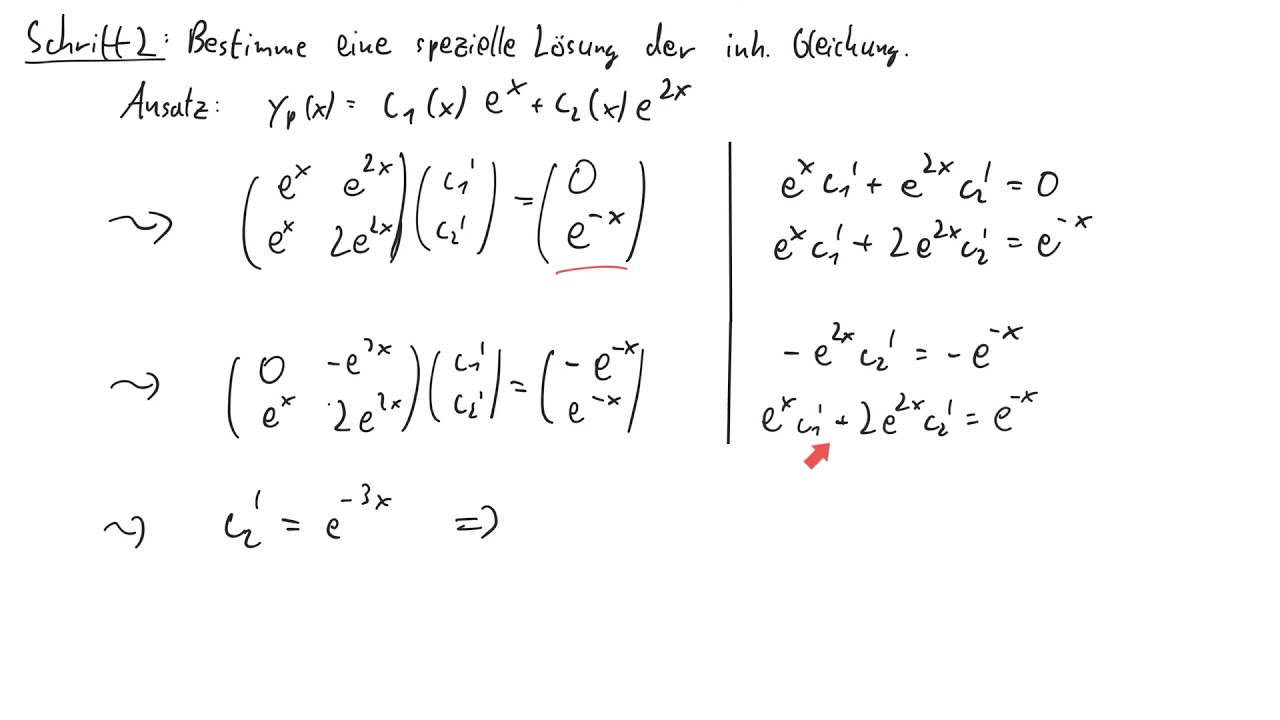 Schritt 2: Bestimme eine spezielle Lösung der inh. Gleichung.
Ansatz: y_p(x) = C₁(x) eˣ + C₂(x) e²ˣ
⇝ (eˣ e²ˣ; eˣ 2e²ˣ) (C₁'; C₂') = (0; e⁻ˣ)
eˣ C₁' + e²ˣ C₂' = 0
eˣ C₁' + 2e²ˣ C₂' = e⁻ˣ
⇝ (0 -e²ˣ; eˣ 2e²ˣ) (C₁'; C₂') = (-e⁻ˣ; e⁻ˣ)
- e²ˣ C₂' = - e⁻ˣ
eˣ C₁' + 2e²ˣ C₂' = e⁻ˣ
⇝ C₂' = e⁻³ˣ ⇒